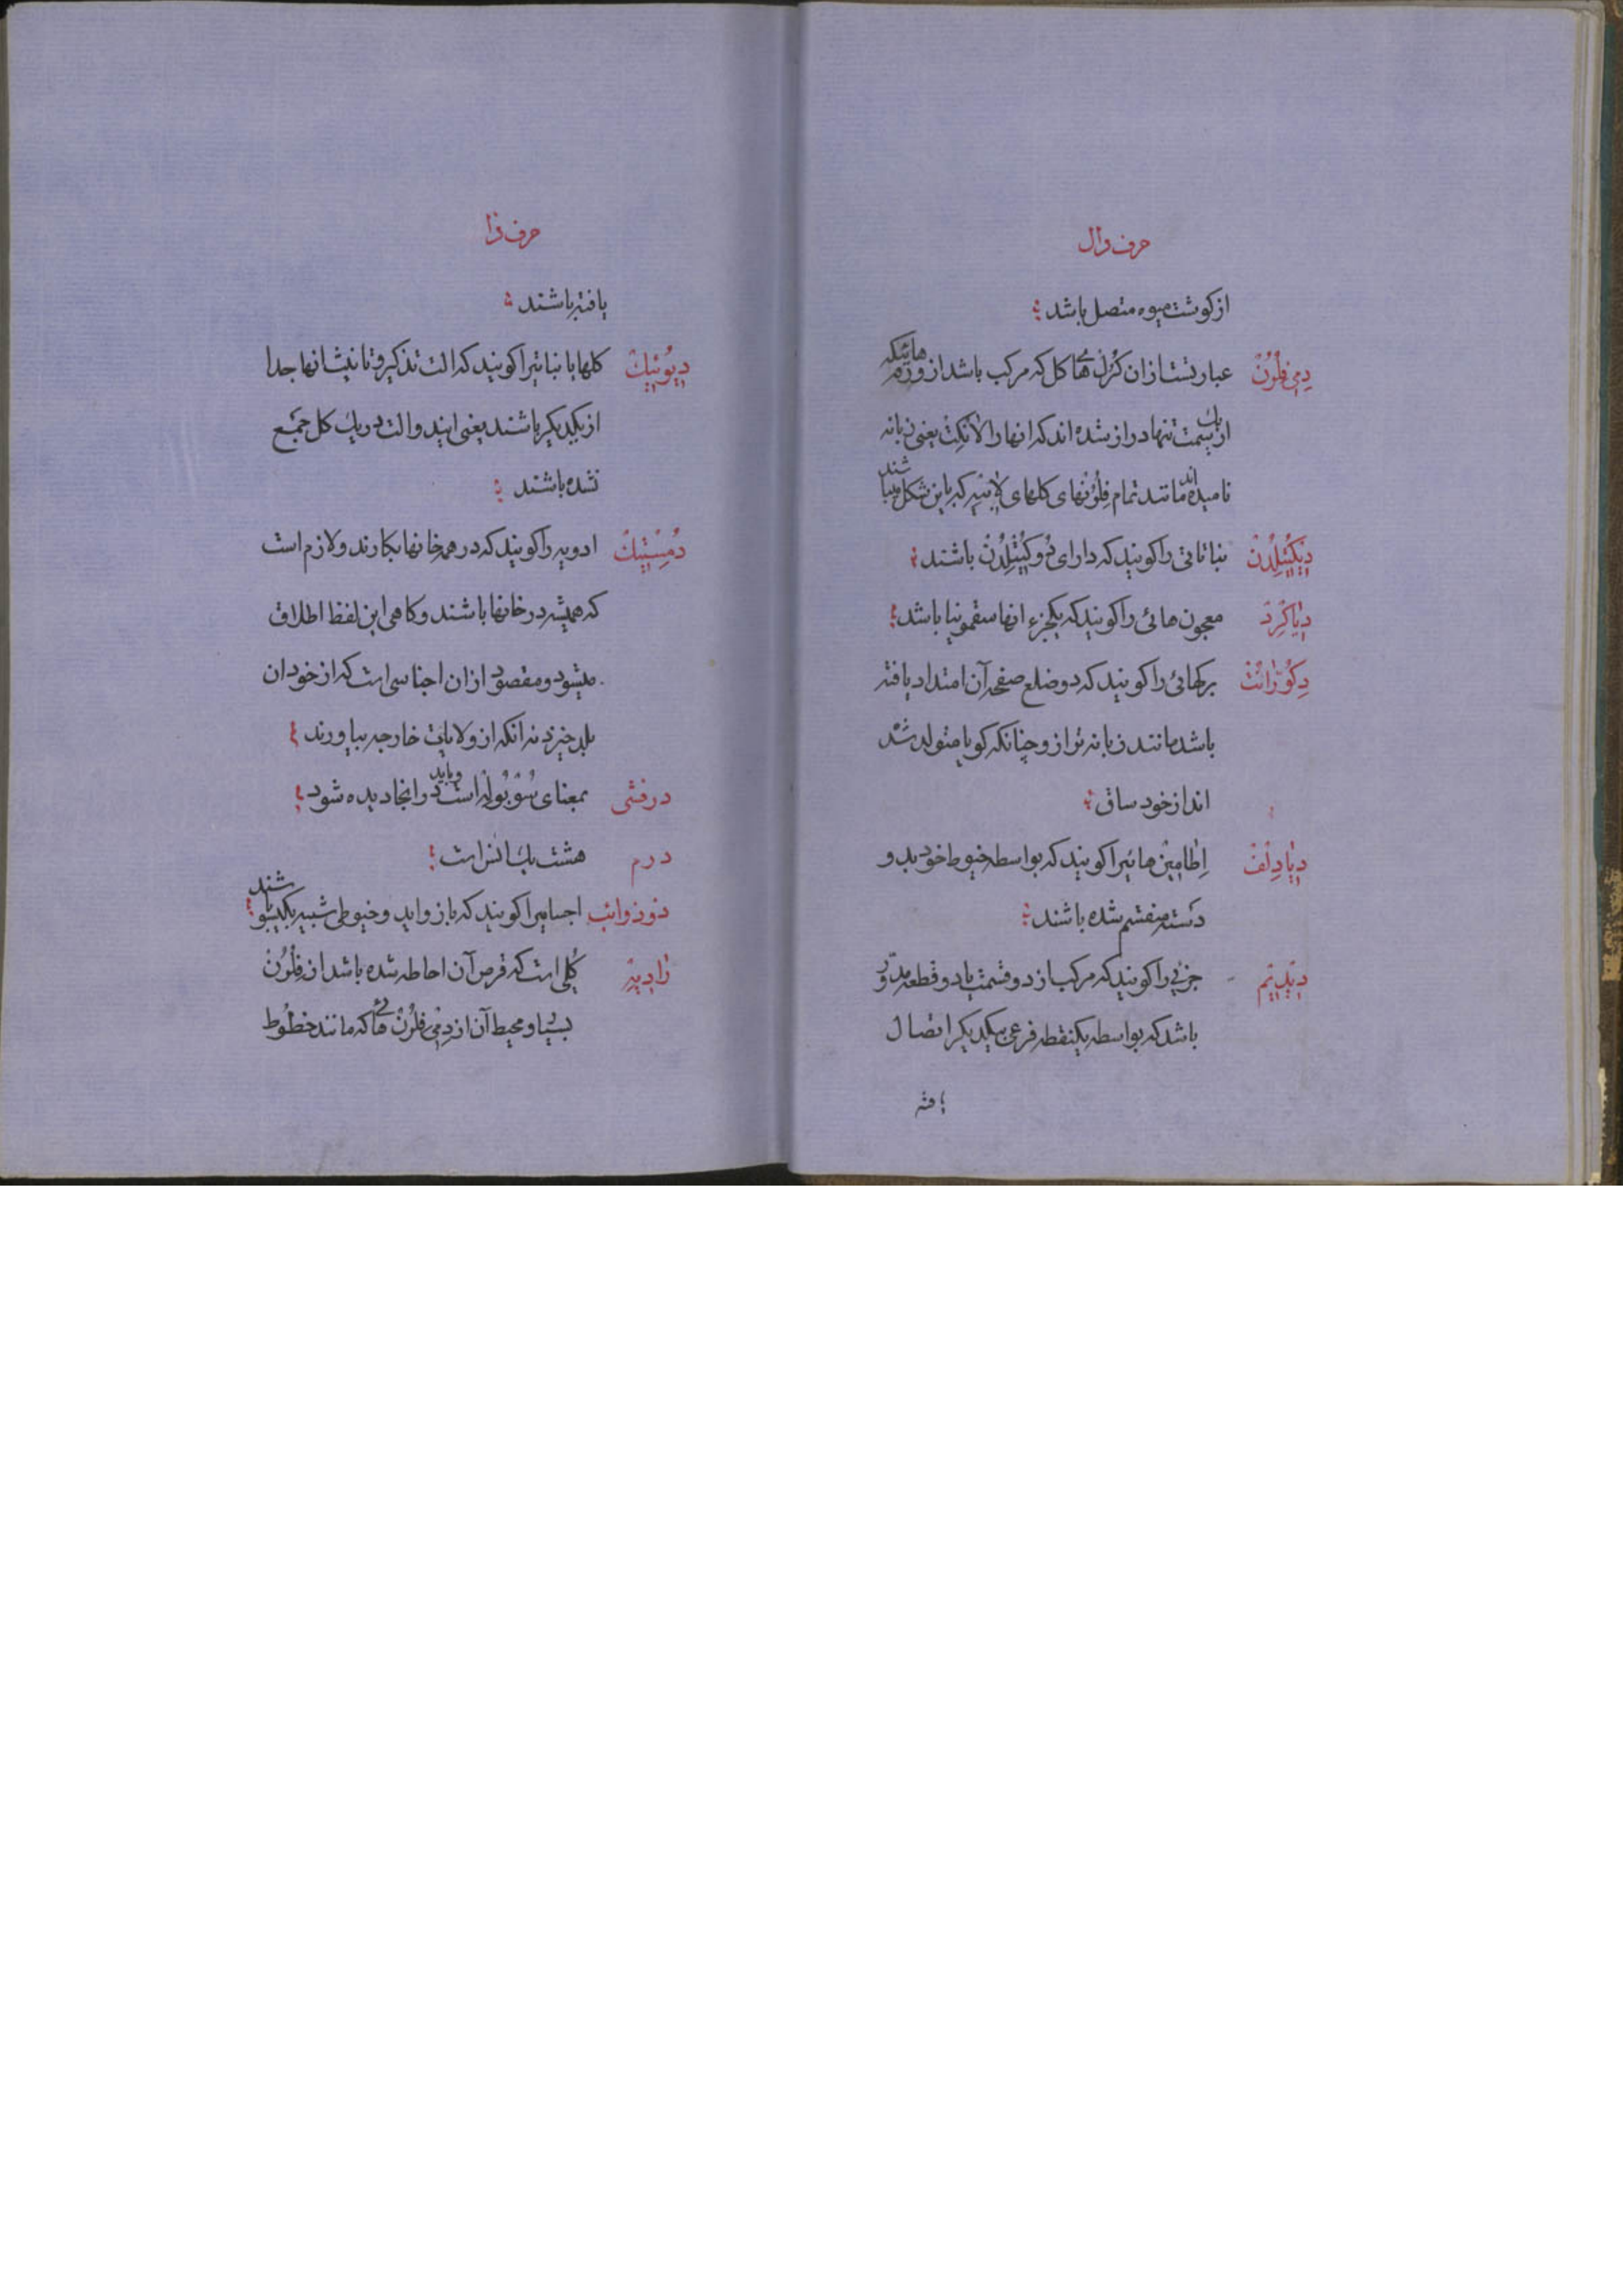 حرف دال
از کوشت میوه متصل باشد
دِمِی فِلُرُنْ عبارتست از ان کُرُل هٔا کل که مرکب باشد از وزمه هائیکه
از یک سمت تنها دراز شده اند که انها را لانکِت یعنی زبانه
نامیده اند مانند تمام فِلُرُنهای کلهای لابیه که باین شکل میباشند
دِیکُتِیلِدُنْ نباتاتی را کویند که دارای دو کُتِیلِدُنْ باشند
دِیاکِرِدْ معجون هائی را کویند که یکجزء انها سقمونیا باشد
دِکوُرانْتْ برکهائی را کویند که دو ضلع صفحه آن امتداد یافته
باشد مانند زبانه تراز و چنانکه کویا متولد شده
اند از خود ساق
دِیادِلْفْ اِطامین هائیرا کویند که بواسطه خیوط خود بدو
دسته منقسم شده باشند
دِیدِیمْ جزئی را کویند که مرکب از دو قسمت یا دو قطعه مدّور
باشد که بواسطه یکنقطه فرعی بیکدیکر اتصال
یافته
حرف را
یافته باشند
دِیوُئیِکْ کلها یا نباتیرا کویند که الت تذکیر و تانیث انها جدا
از یکدیکر باشند یعنی ایند و الت در یک کل جمع
نشده باشند
دُمِسْتِیکْ ادویه را کویند که در همه خانها بکارند و لازم است
که همیشه در خانها باشند و کاهی این لفظ اطلاق
میشود و مقصود از ان اجناسی است که از خود ان
بلد خیزد نه انکه از ولایات خارجه بیاورند
درفشی بمعنای سُوبُولَه است و باید در انجا دیده شود
درم هشت یک انس است
ذوذوائب اجسامیرا کویند که با زواید و خیوطی شبیه بکیسو باشند
رادِیِه کُلی است که قرص آن احاطه شده باشد از فِلُرُنْ
بسیا و محیط آن از دِمِی فِلُرُنْ هٔا که مانند خطوط